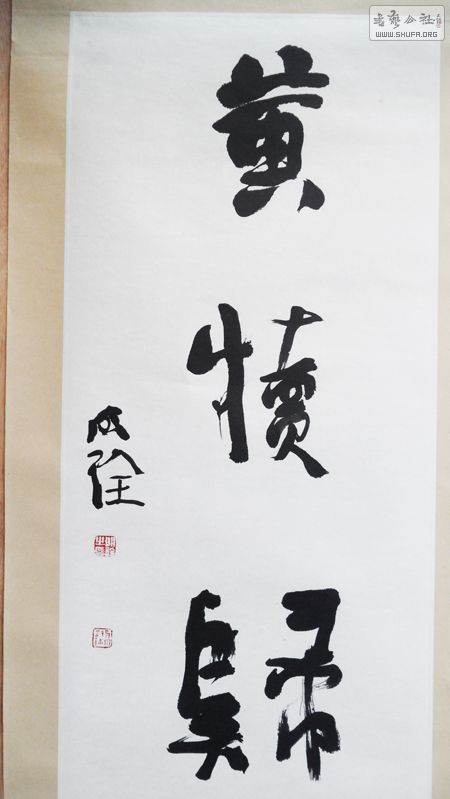 黄
犢
歸
明詮
書藝公社
WWW.SHUFA.ORG